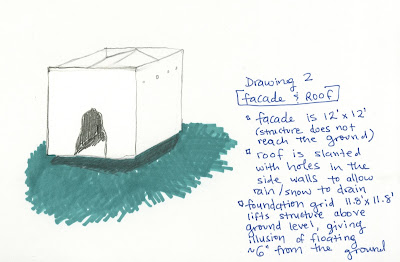 Drawing 2
facade & Roof
facade is 12' x 12'
(structure does not
reach the ground)
roof is slanted
with holes in the
side walls to allow
rain/snow to drain
foundation grid 11.8' x 11.8'
lifts structure above
ground level, giving
illusion of floating
~6" from the ground